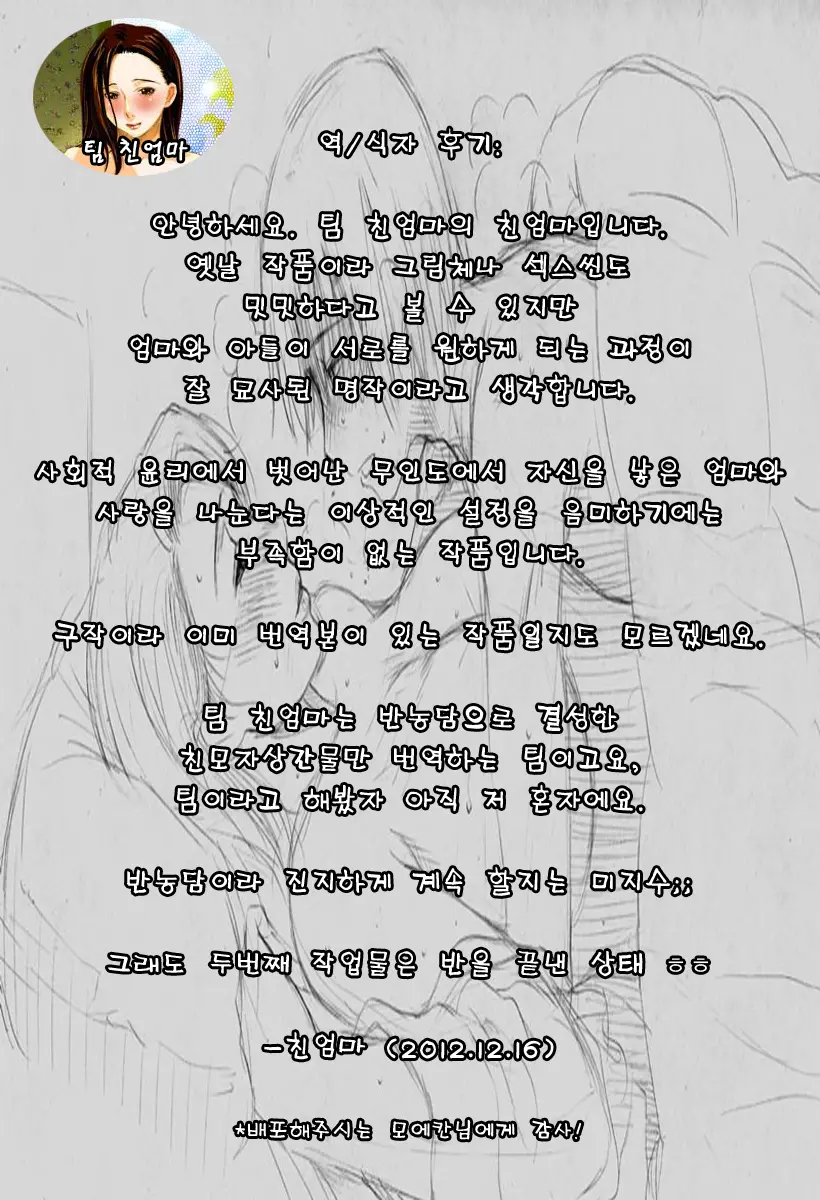 팀 친엄마
역/식자 후기:
안녕하세요. 팀 친엄마의 친엄마입니다.
옛날 작품이라 그림체나 섹스씬도
밋밋하다고 볼 수 있지만
엄마와 아들이 서로를 원하게 되는 과정이
잘 묘사된 명작이라고 생각합니다.
사회적 윤리에서 벗어난 무인도에서 자신을 낳은 엄마와
사랑을 나눈다는 이상적인 설정을 음미하기에는
부족함이 없는 작품입니다.
구작이라 이미 번역본이 있는 작품일지도 모르겠네요.
팀 친엄마는 반농담으로 결성한
친모자상간물만 번역하는 팀이고요,
팀이라고 해봤자 아직 저 혼자에요.
반농담이라 진지하게 계속 할지는 미지수;;
그래도 두번째 작업물은 반을 끝낸 상태 ㅎㅎ
-친엄마 (2012.12.16)
*배포해주시는 모에칸님에게 감사!